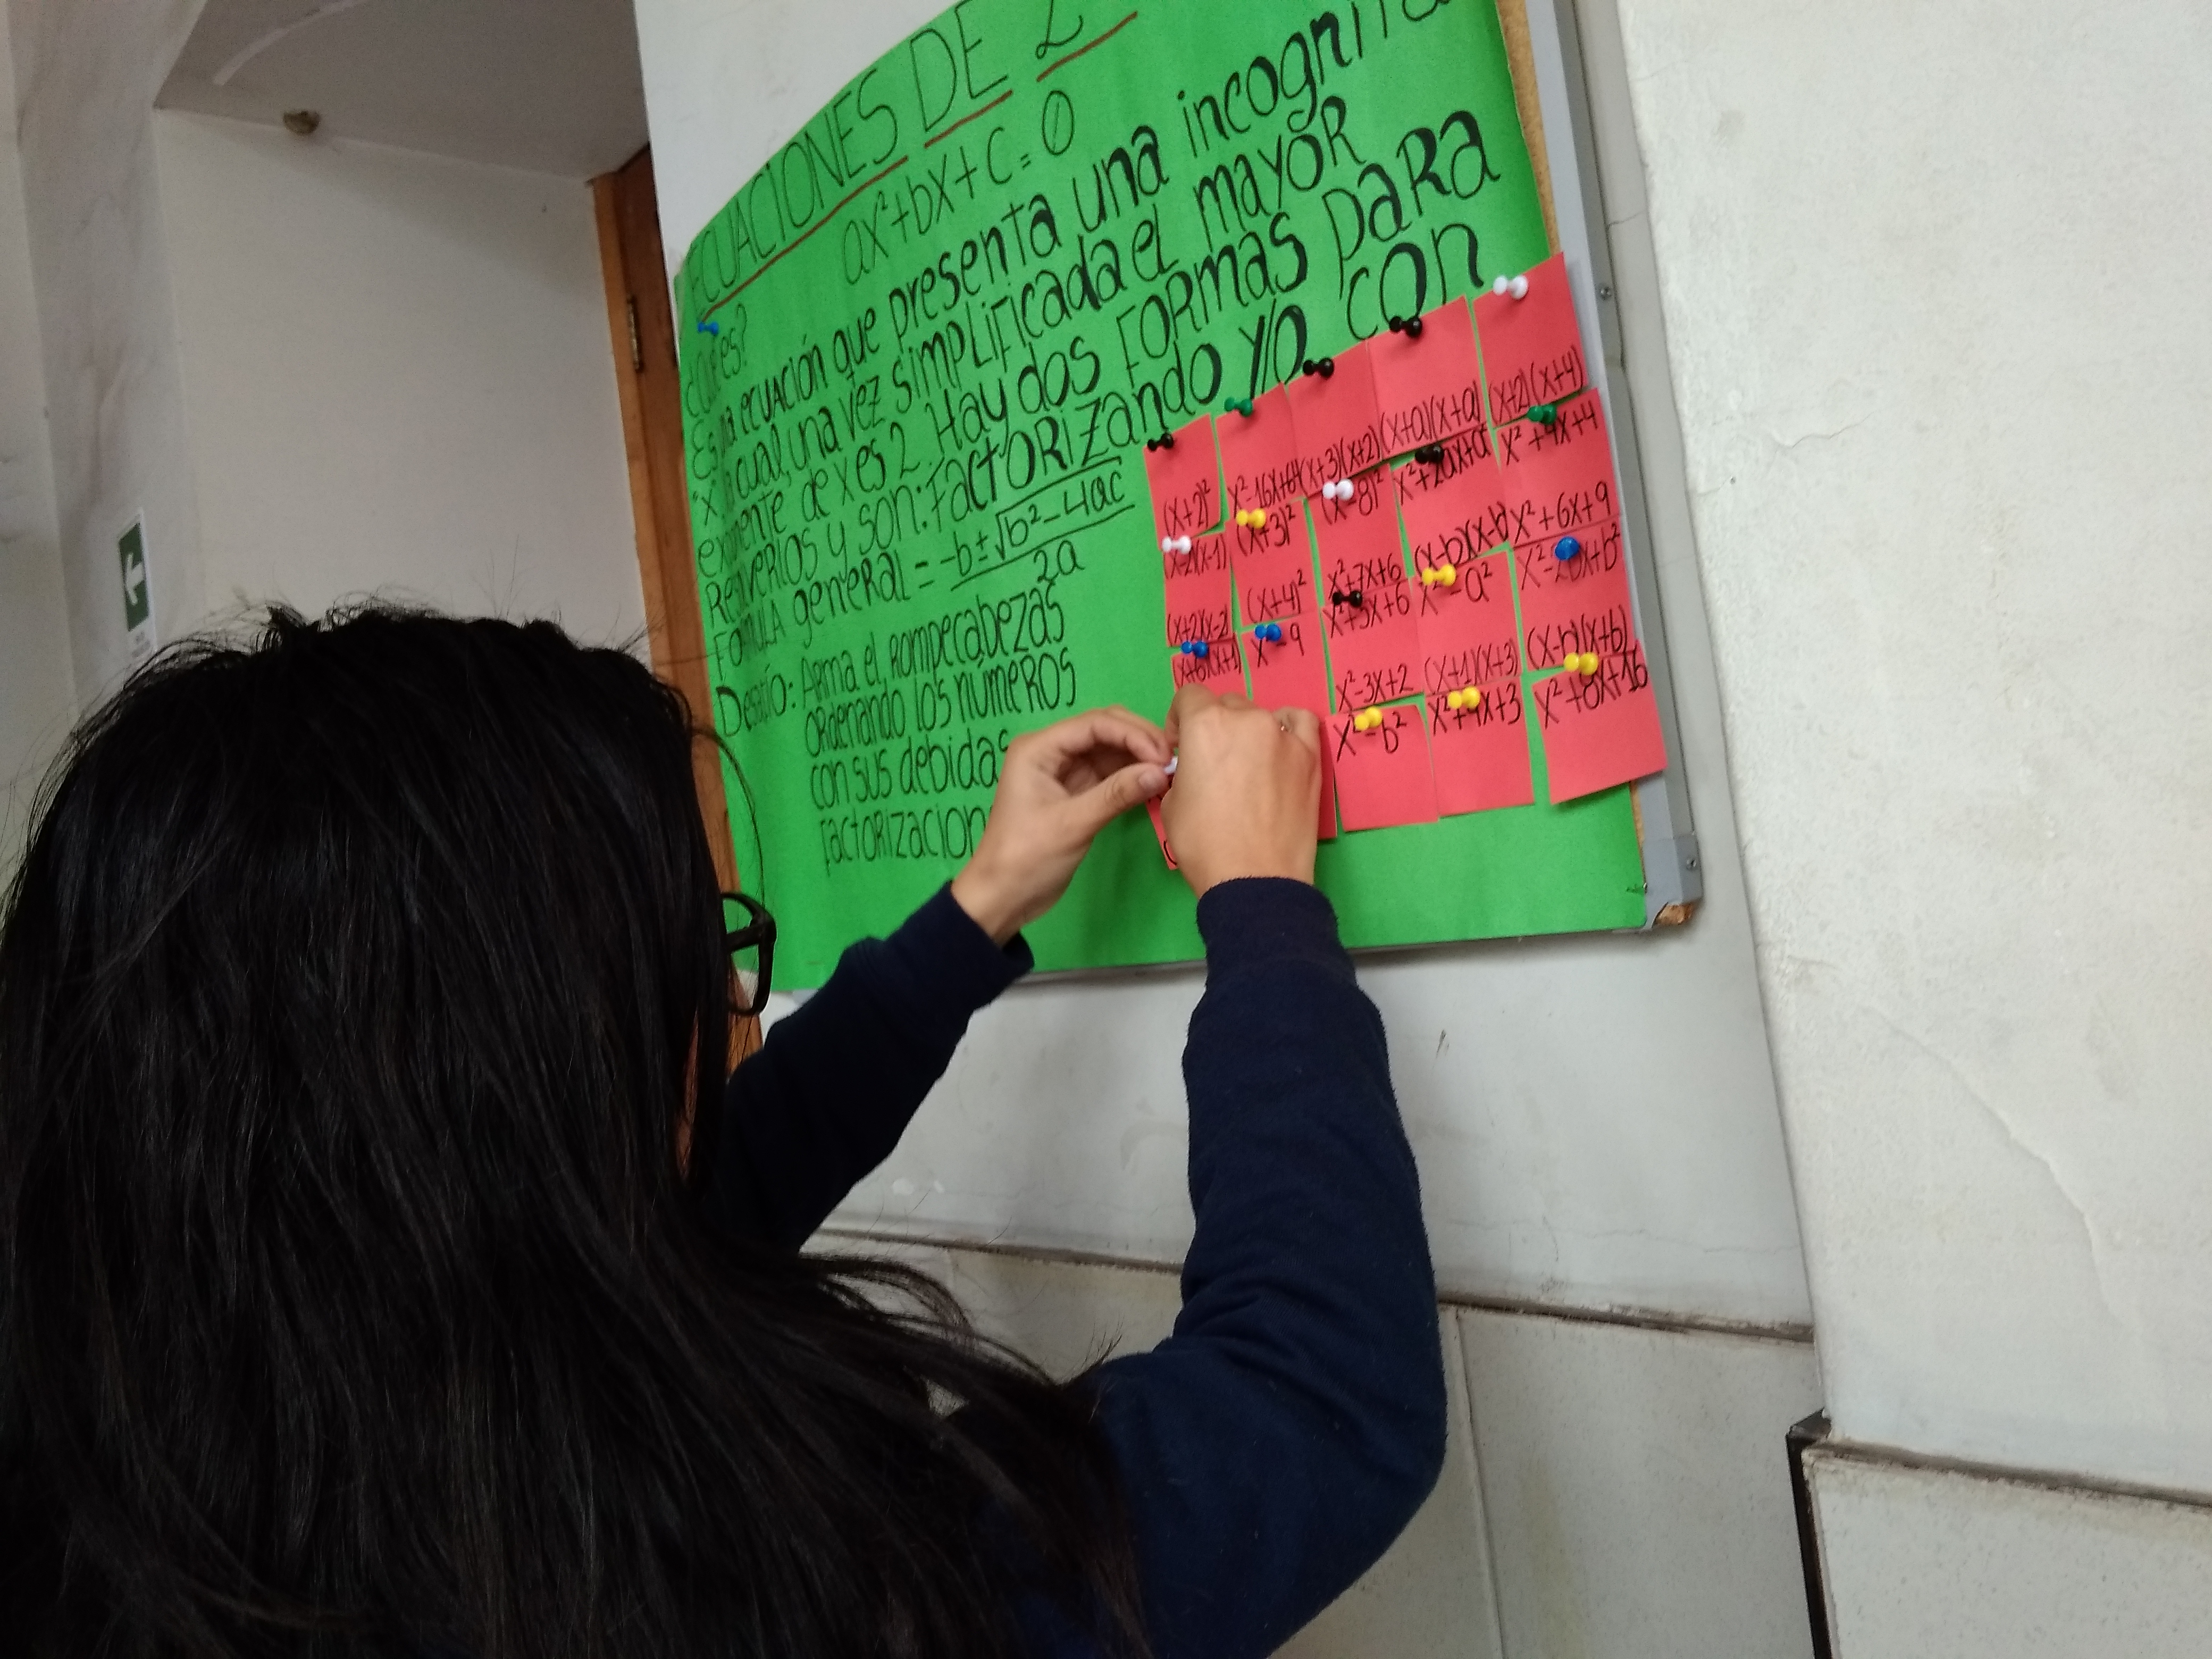 ECUACIONES DE 2
ax²+bx+c=0
¿Qué es?
Es la ecuación que presenta una incognita
"x" la cual, una vez simplificada el mayor
exponente de x es 2. Hay dos formas para
y son: factorizando y/o con
formula general = -b±√b²-4ac
2a
Desafío: Arma el rompecabezas
ordenando los números
con sus debidas
factorizacion
(x+2)²
x²-16x+64
(x+3)(x+2)
(x+a)(x+a)
(x+2)(x+4)
(x-2)(x-1)
(x+3)²
(x-8)²
x²+2ax+a²
x²+4x+4
(x+2)(x-2)
(x+4)²
x²+7x+6
(x-b)(x-b)
x²+6x+9
(x+6)(x+1)
x²-9
x²+5x+6
x²-a²
x²-2bx+b²
x²-3x+2
(x+1)(x+3)
(x-b)(x+b)
x²-b²
x²+4x+3
x²+8x+16